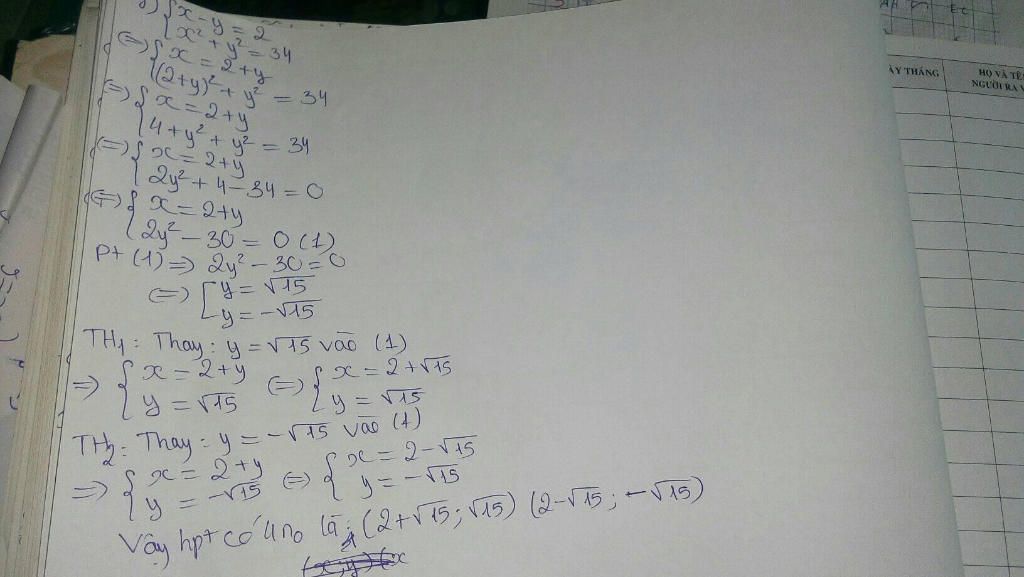 {x - y = 2
x² + y² = 34
(=) {x = 2 + y
(2+y)² + y² = 34
(=) {x = 2 + y
4 + y² + y² = 34
(=) {x = 2 + y
2y² + 4 - 34 = 0
(=) {x = 2 + y
2y² - 30 = 0 (1)
Pt (1) => 2y² - 30 = 0
(=) [y = √15
y = -√15
TH1: Thay: y = √15 vào (1)
=> {x = 2 + y (=) {x = 2 + √15
y = √15 y = √15
TH2: Thay: y = -√15 vào (1)
=> {x = 2 + y (=) {x = 2 - √15
y = -√15 y = -√15
Vậy hpt có 4 no là: (2 + √15; √15) (2 - √15; -√15)
ÀY THÁNG
HỌ VÀ TÊ
NGƯỜI RA V